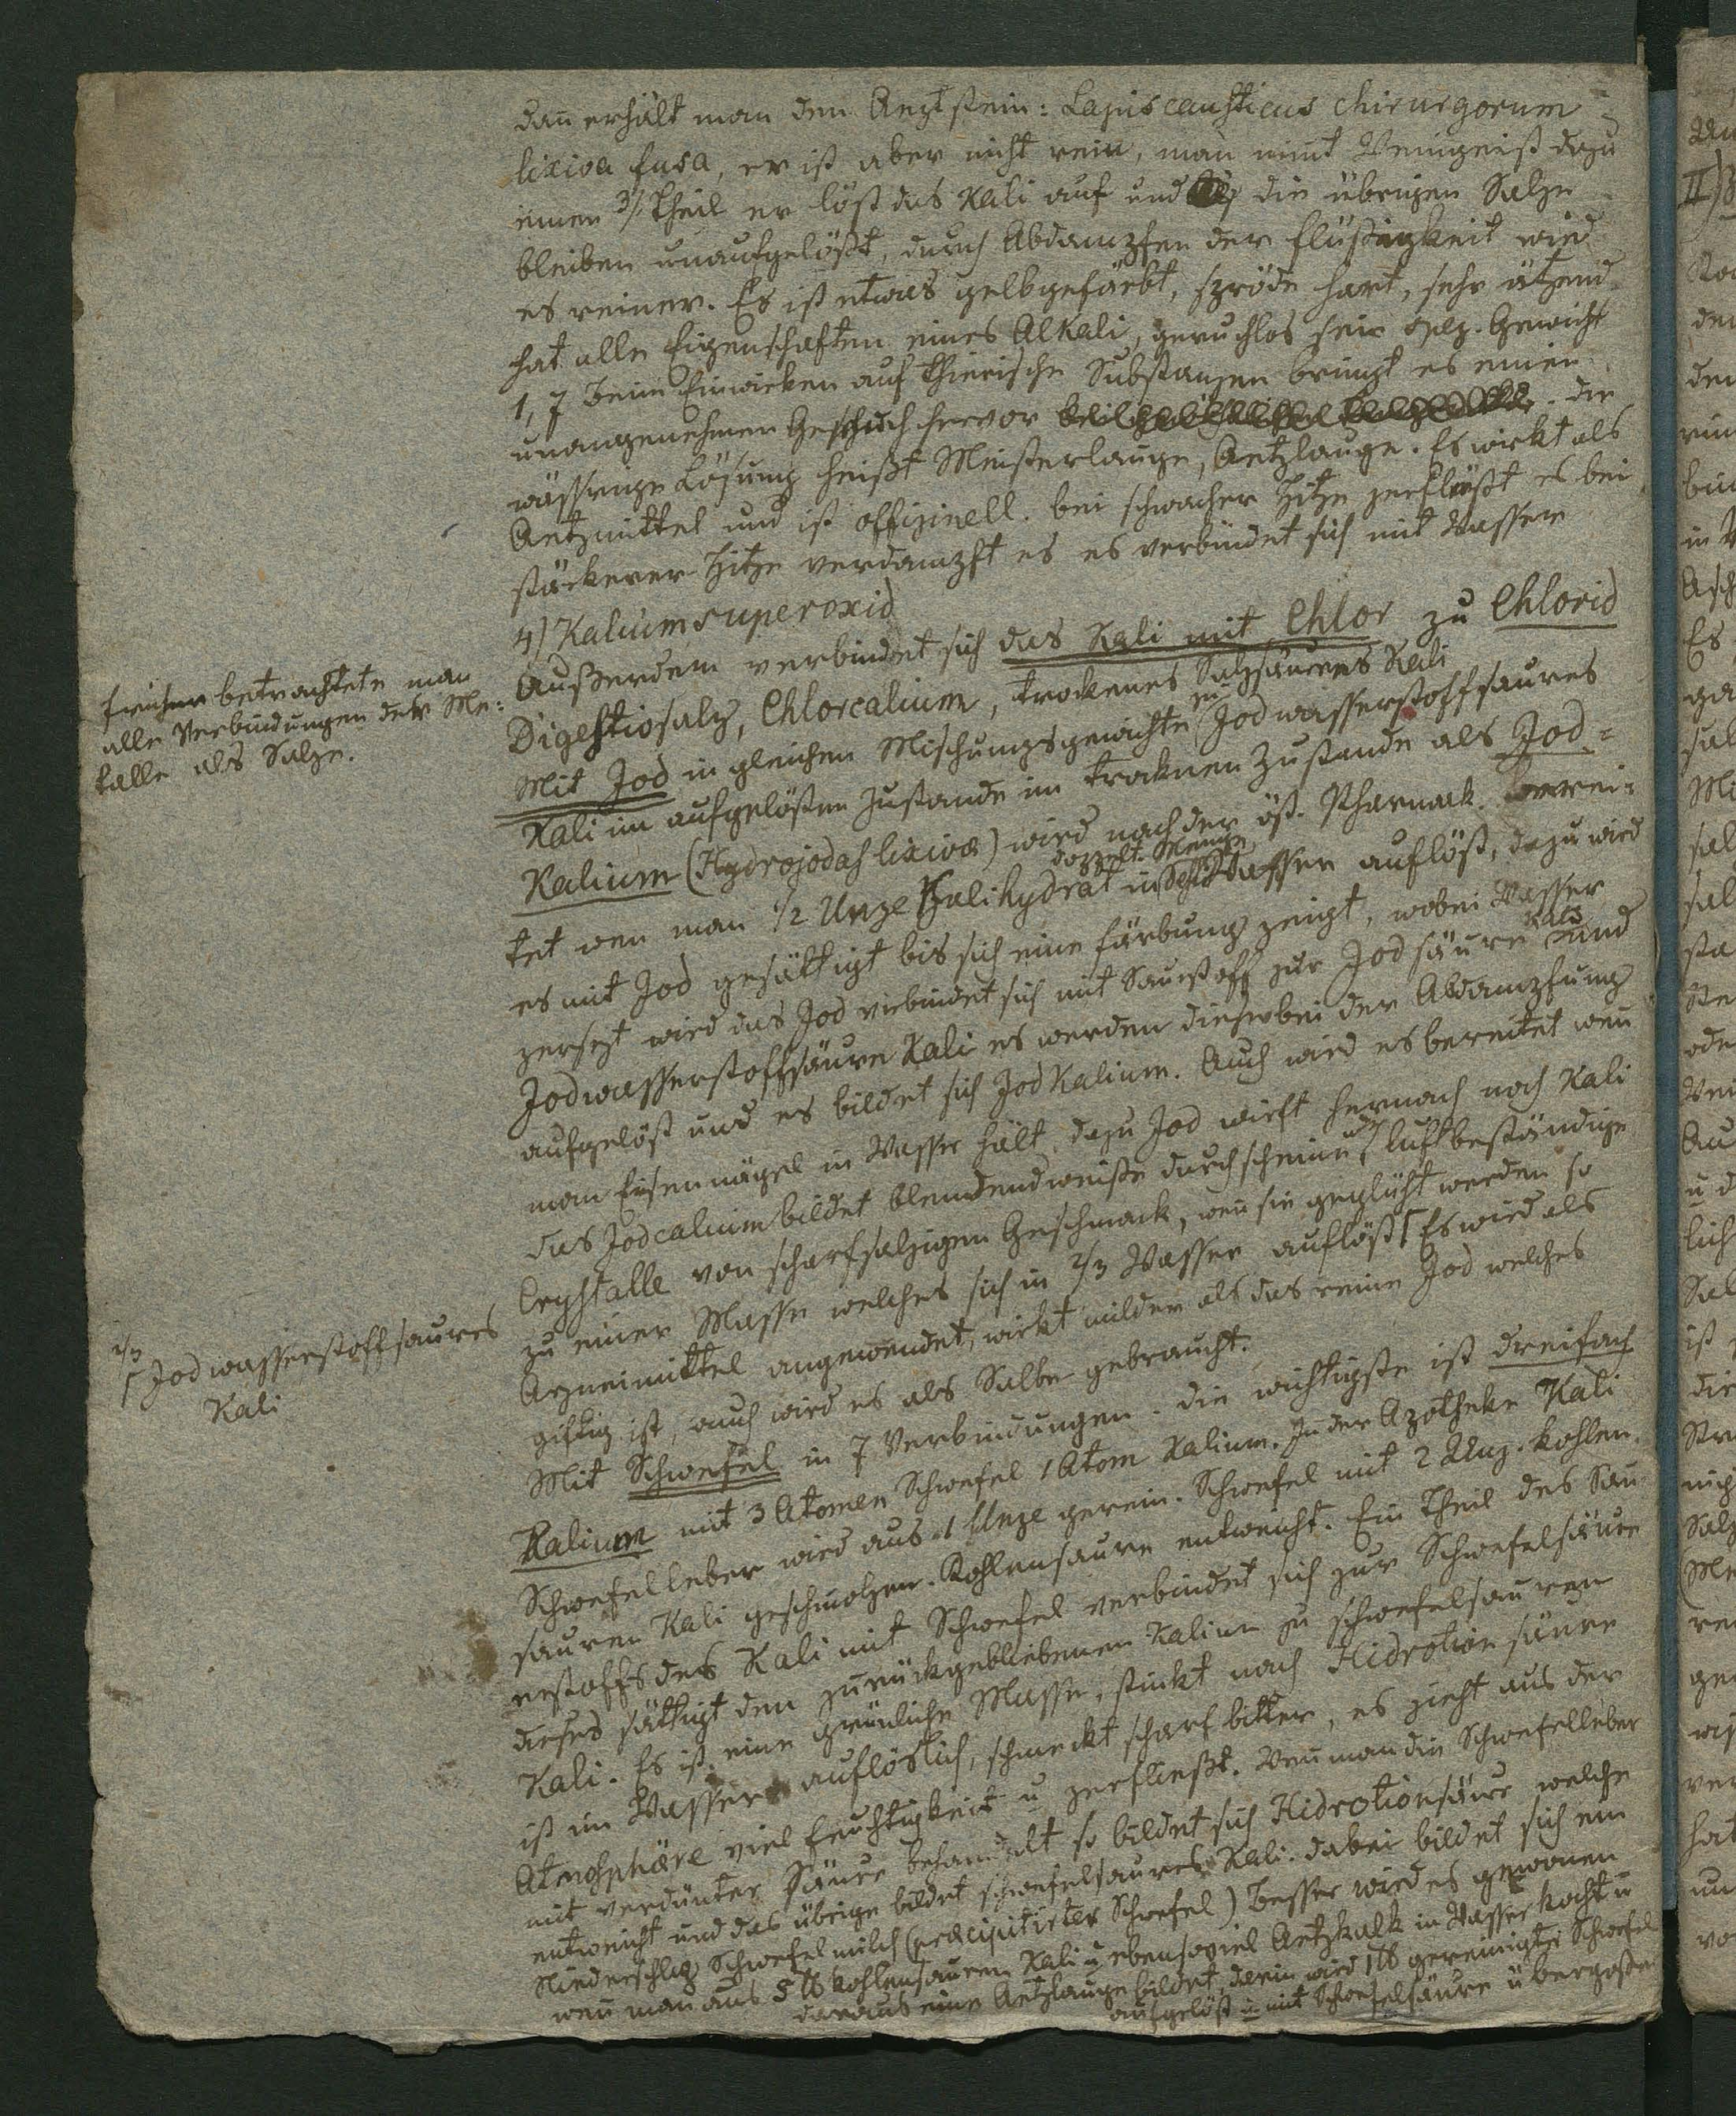 dan̄ erhält man den Aeztstein: Lapis causticus chirurgorum
lixiva fusa, er ist aber nicht rein, man nim̄t Weingeist dazu
einen 3/ Theil er löst das Kali auf und die übrigen Salze
bleiben unaufgelößt, durch Abdampfen der Flüßigkeit wird
es reiner. Es ist etwas gelbgefärbt, spröde hart, sehr ätzend
hat alle Eigenschaften eines Alkali, geruchlos sein spez. Gewicht
1,7 beim Einwirken auf thierische Substanzen bringt es einen
unangenehmen Geruch hervor. Die
wässrige Lösung heißt Meisterlauge, Aetzlauge. Es wirkt als
Aetzmittel und ist offizinell. bei schwacher Hitze zerfließt es bei
stärkerer Hitze verdampft es es verbindet sich mit Wasser
4) Kaliumsuperoxid
Außerdem verbindet sich das Kali mit Chlor zu Chlorid
Digestivsalz, Chlorcalium, trockenes Salzsaures Kali
früher betrachtete man
alle Verbindungen der Me-
talle als Salze.
Mit Jod in gleichen Mischungsgewichte zu Jodwasserstoffsaures
Kali im aufgelösten Zustande im trocknen Zustande als Jod-
Kalium (Hydrojodas lixivæ) wird nach der öst. Pharmak. berei-
tet wen man 1/2 Unze Kalihydrat in doppelt. Menge Wasser auflöst, dazu wird
es mit Jod gesättigt bis sich eine Färbung zeigt, wobei Wasser
zersezt wird das Jod verbindet sich mit Sauerstoff zur Jodsäure und
Jodwasserstoffsäure Kali es werden diese bei der Abdampfung
aufgelöst und es bildet sich JodKalium. Auch wird es bereitet wen̄
man Eisennägel in Wasser hält dazu Jod wirft hernach noch Kali
das Jodcalium bildet blendendweiße durchscheinende luftbeständige
Crystalle von scharfsalzigen Geschmack, wen̄ sie geglüht werden so
zu einer Masse welches sich in 2/3 Wasser auflöst Γ Es wird als
2/3
Γ Jodwasserstoffsaures
Kali
Arzneimittel angewendet, wirkt milder als das reine Jod welches
giftig ist, auch wird es als Salbe gebraucht.
Mit Schwefel in 7 Verbindungen. die wichtigste ist dreifach
Kalium mit 3 Atomen Schwefel 1 Atom Kalium. In der Apotheke Kali
Schwefelleber wird aus 1 Unze gerein. Schwefel mit 2 Unz. kohlen.
sauren Kali geschmolzen. Kohlensaure entweicht. Ein Theil des Sau
erstoffs des Kali mit Schwefel verbindet sich zur Schwefelsäure
dieses sättigt den zurückgebliebenen Kalium zu schwefelsauren
Kali. Es ist eine grünliche Masse, stinkt nach Hidrotionsäure
ist im Wasser auflöslich, schmeckt scharf bitter, es zieht aus der
Atmosphäre viel Feuchtigkeit u zerfließt. Wen̄ man die Schwefelleber
mit verdünter Säure behandelt so bildet sich Hidrotionsäure welche
entweicht und das übrige bildet schwefelsaures Kali. dabei bildet sich ein
Niederschlag Schwefelmilch (præcipitirter Schwefel) besser wird es gewonen
wen̄ man aus 5 ℔ kohlensauren Kali u ebensoviel Aetzkalk in Wasser kocht u
daraus eine Aetzlauge bildet, darin wird 1 ℔ gereinigter Schwefel
aufgelöst u mit Schwefelsäure übergoßen